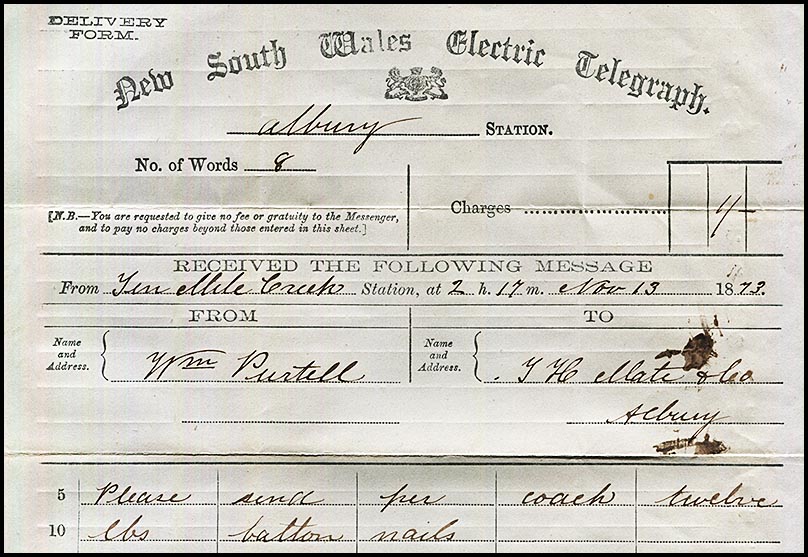 DELIVERY
FORM.
New South Wales Electric Telegraph.
Albury STATION.
No. of Words 8
[N.B.—You are requested to give no fee or gratuity to the Messenger,
and to pay no charges beyond those entered in this sheet.]
Charges 1/-
RECEIVED THE FOLLOWING MESSAGE
From Ten Mile Creek Station, at 2 h. 17 m. Nov 13 1873.
FROM TO
Name and Address. Wm Purtell
Name and Address. T H Mate & Co
Albury
5 Please send per coach twelve
10 lbs batton nails